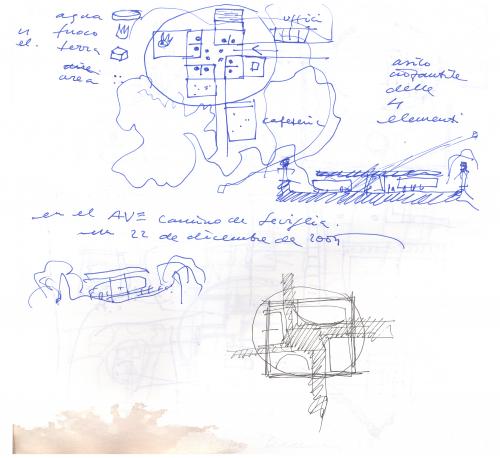 agua
uffici
fuoco
el.
terra
area
asilo
infantile
delle
4
elementi
cafeteria
en el AVE camino de Seviglia.
en 22 de dicembre de 2004